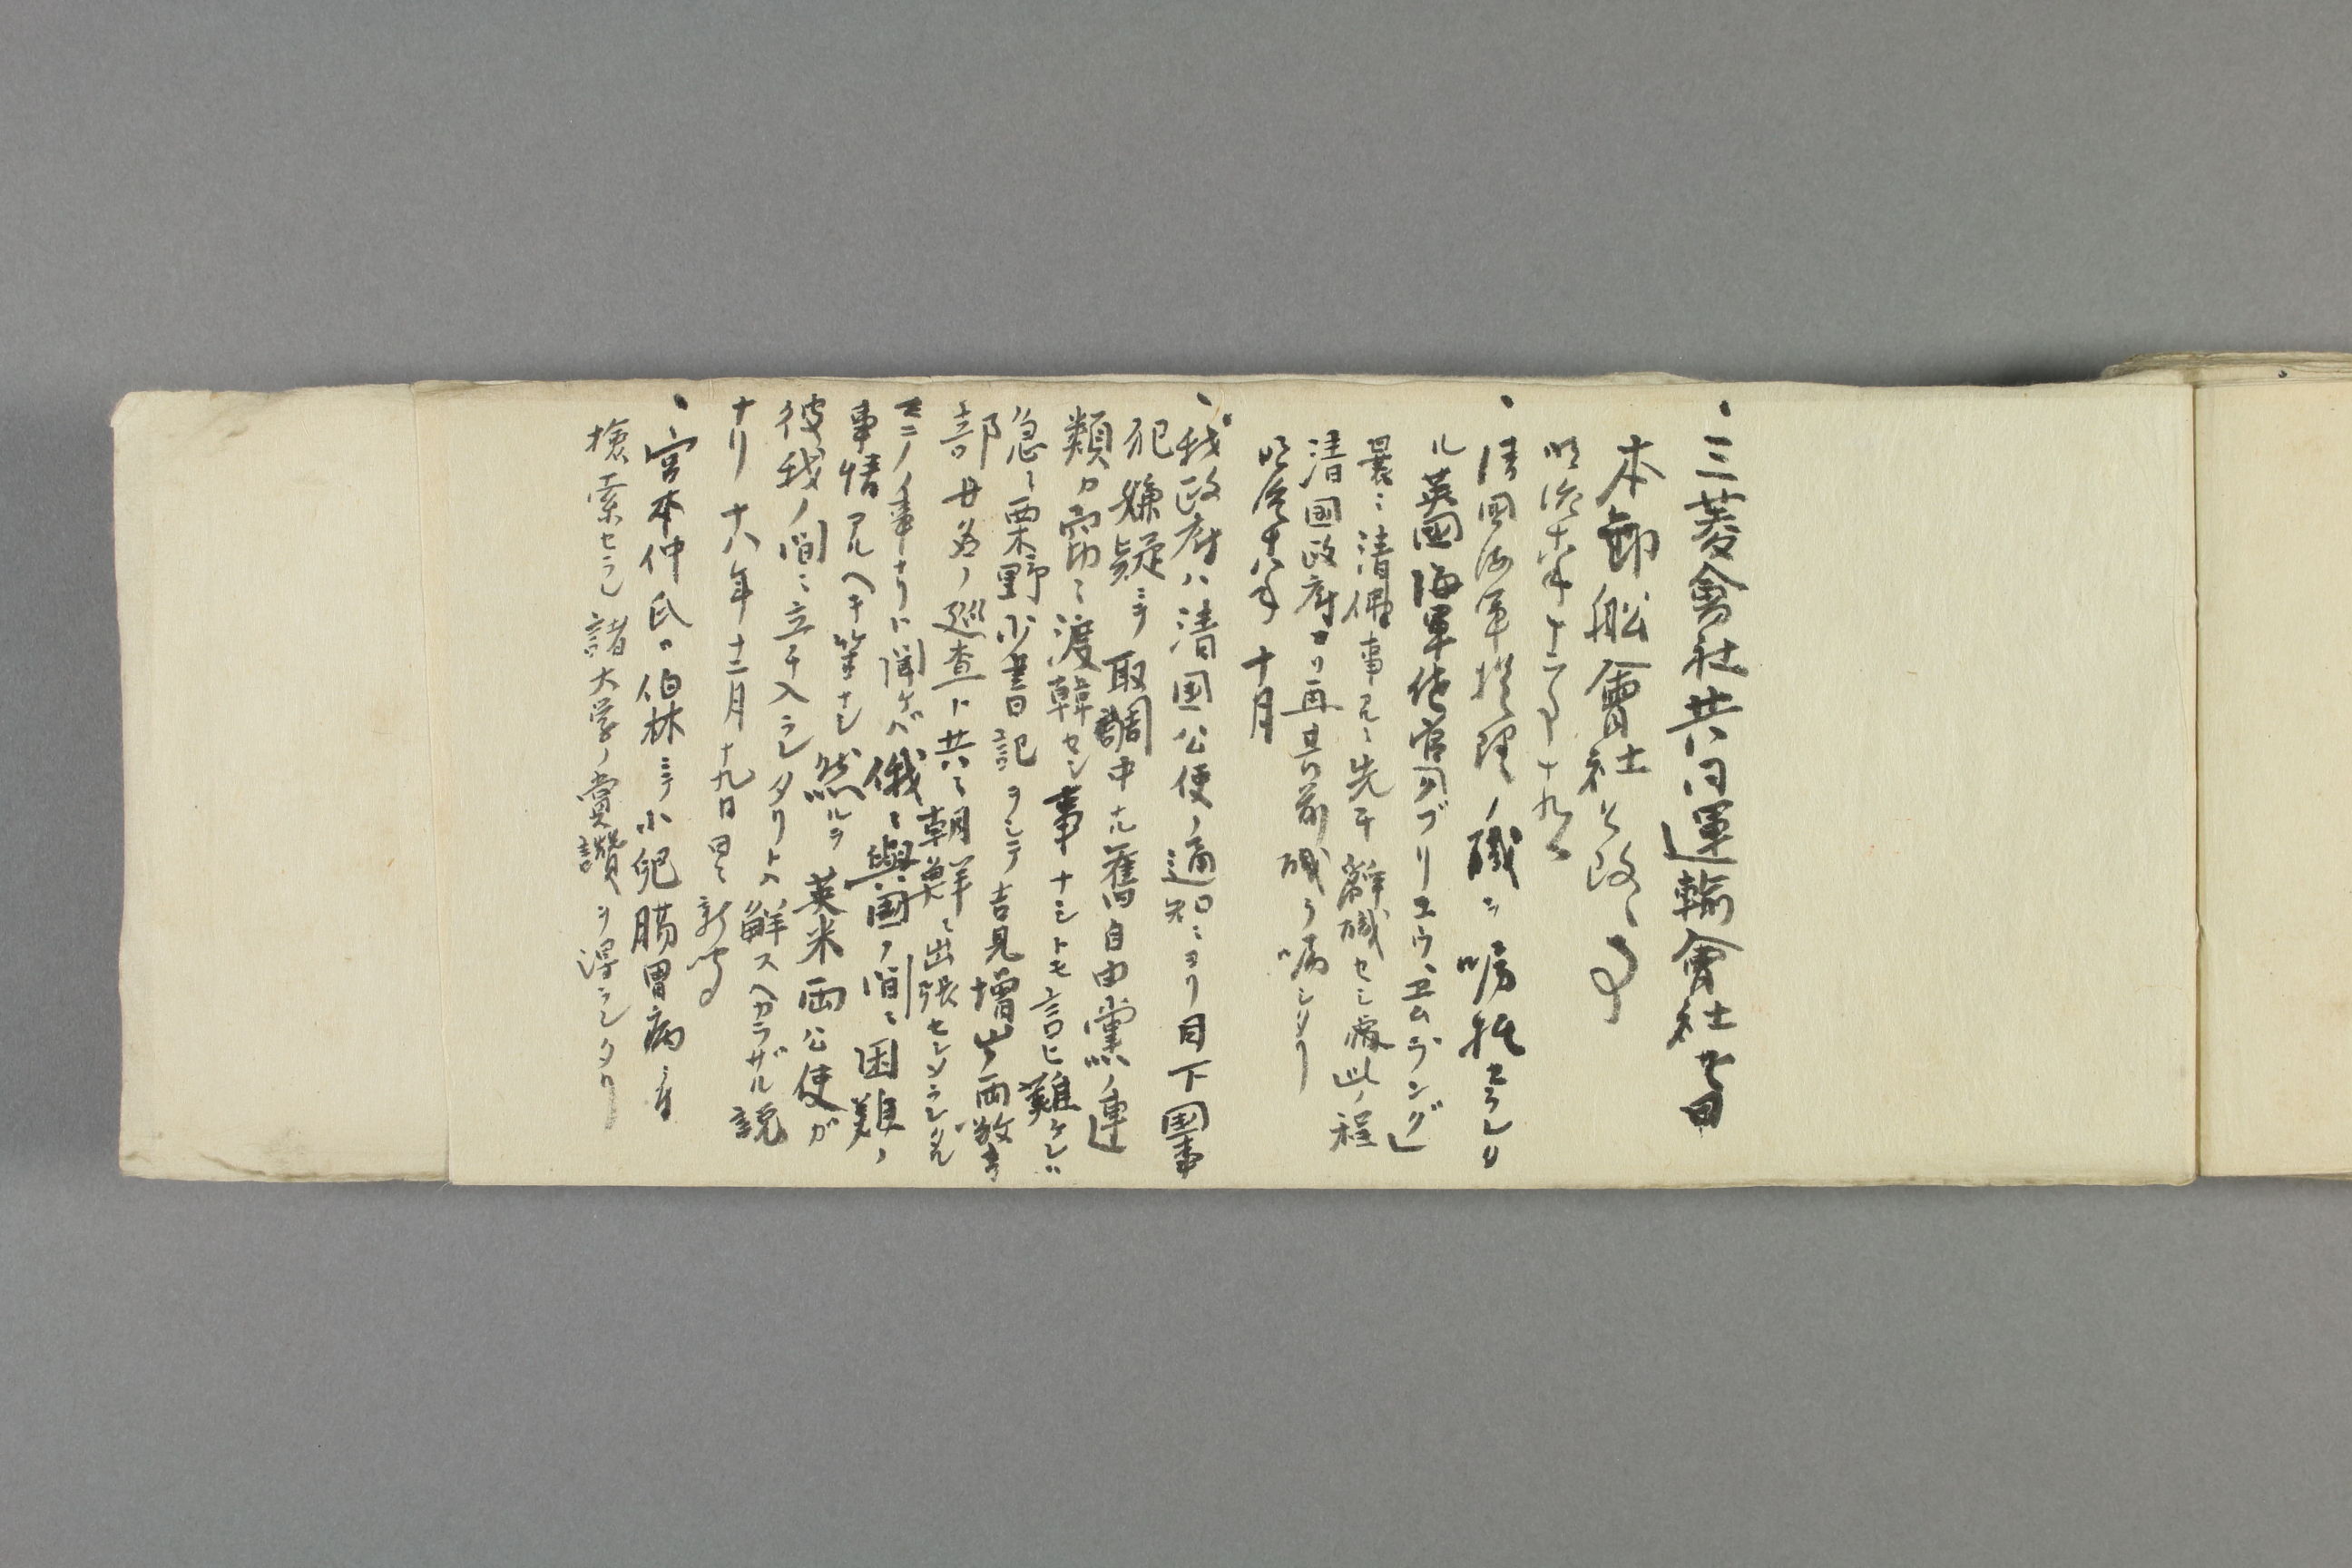 、三菱會社共同運輸會社昔日
本郵舩會社と改、
明治十八年十二月十九日
、清國海軍総理ノ職ヲ嘱托セラレタ
ル英國海軍佐官ヴブリユウ、エムラング」
曩ニ清佛事アルニ先チ辞職セシ處此ノ程
清國政府ヨリ再ヒ其前職ヲ嘱シタリ
明治十八年十月
、我政府ハ清国公使ノ通知ニヨリ目下国事
犯嫌疑ニテ取調中ナル舊自由黨ノ連
類カ窃ニ渡韓セシ事ナシトモ言ヒ難ケレバ
急ニ栗野少書記ヲシテ吉見増山両敬
部廿名ノ巡査ト共ニ朝鮮ニ出張セシメラレタル
ノ事ナリト聞ケバ俄ニ與国ノ間ニ困難ノ
事情アルヘキ筈ナシ然ルヲ英米両公使ガ
彼我ノ間ニ立チ入ラレタリトハ解スヘカラザル説
ナリ 十八年十二月十九日 新聞
、宮本仲氏ハ伯林ニテ小兒腸胃病ヲ
検索セラレ諸大学ノ賞讃ヲ得ラレタリ